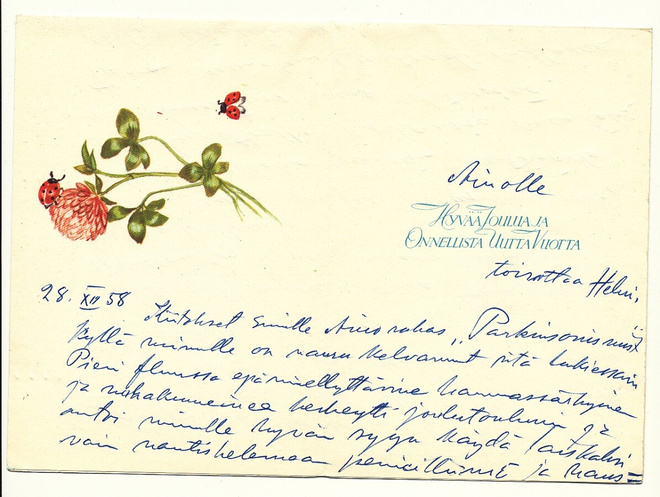 Ainolle
HYVÄÄ JOULUA JA
ONNELLISTA UUTTA VUOTTA
toivottaa Helvi.
28. XII 58 Kiitokset Sinulle Aino rakas „Parkinsonismista"
Kyllä minulle on nauru kelvannut sitä lukiessani
Pieni flunssa epämiellyttävine hammassärkyine
ja
antoi minulle hyvän syyn käydä laiskaksi
vain nautiskelemaan penicilliiniä ja haus=